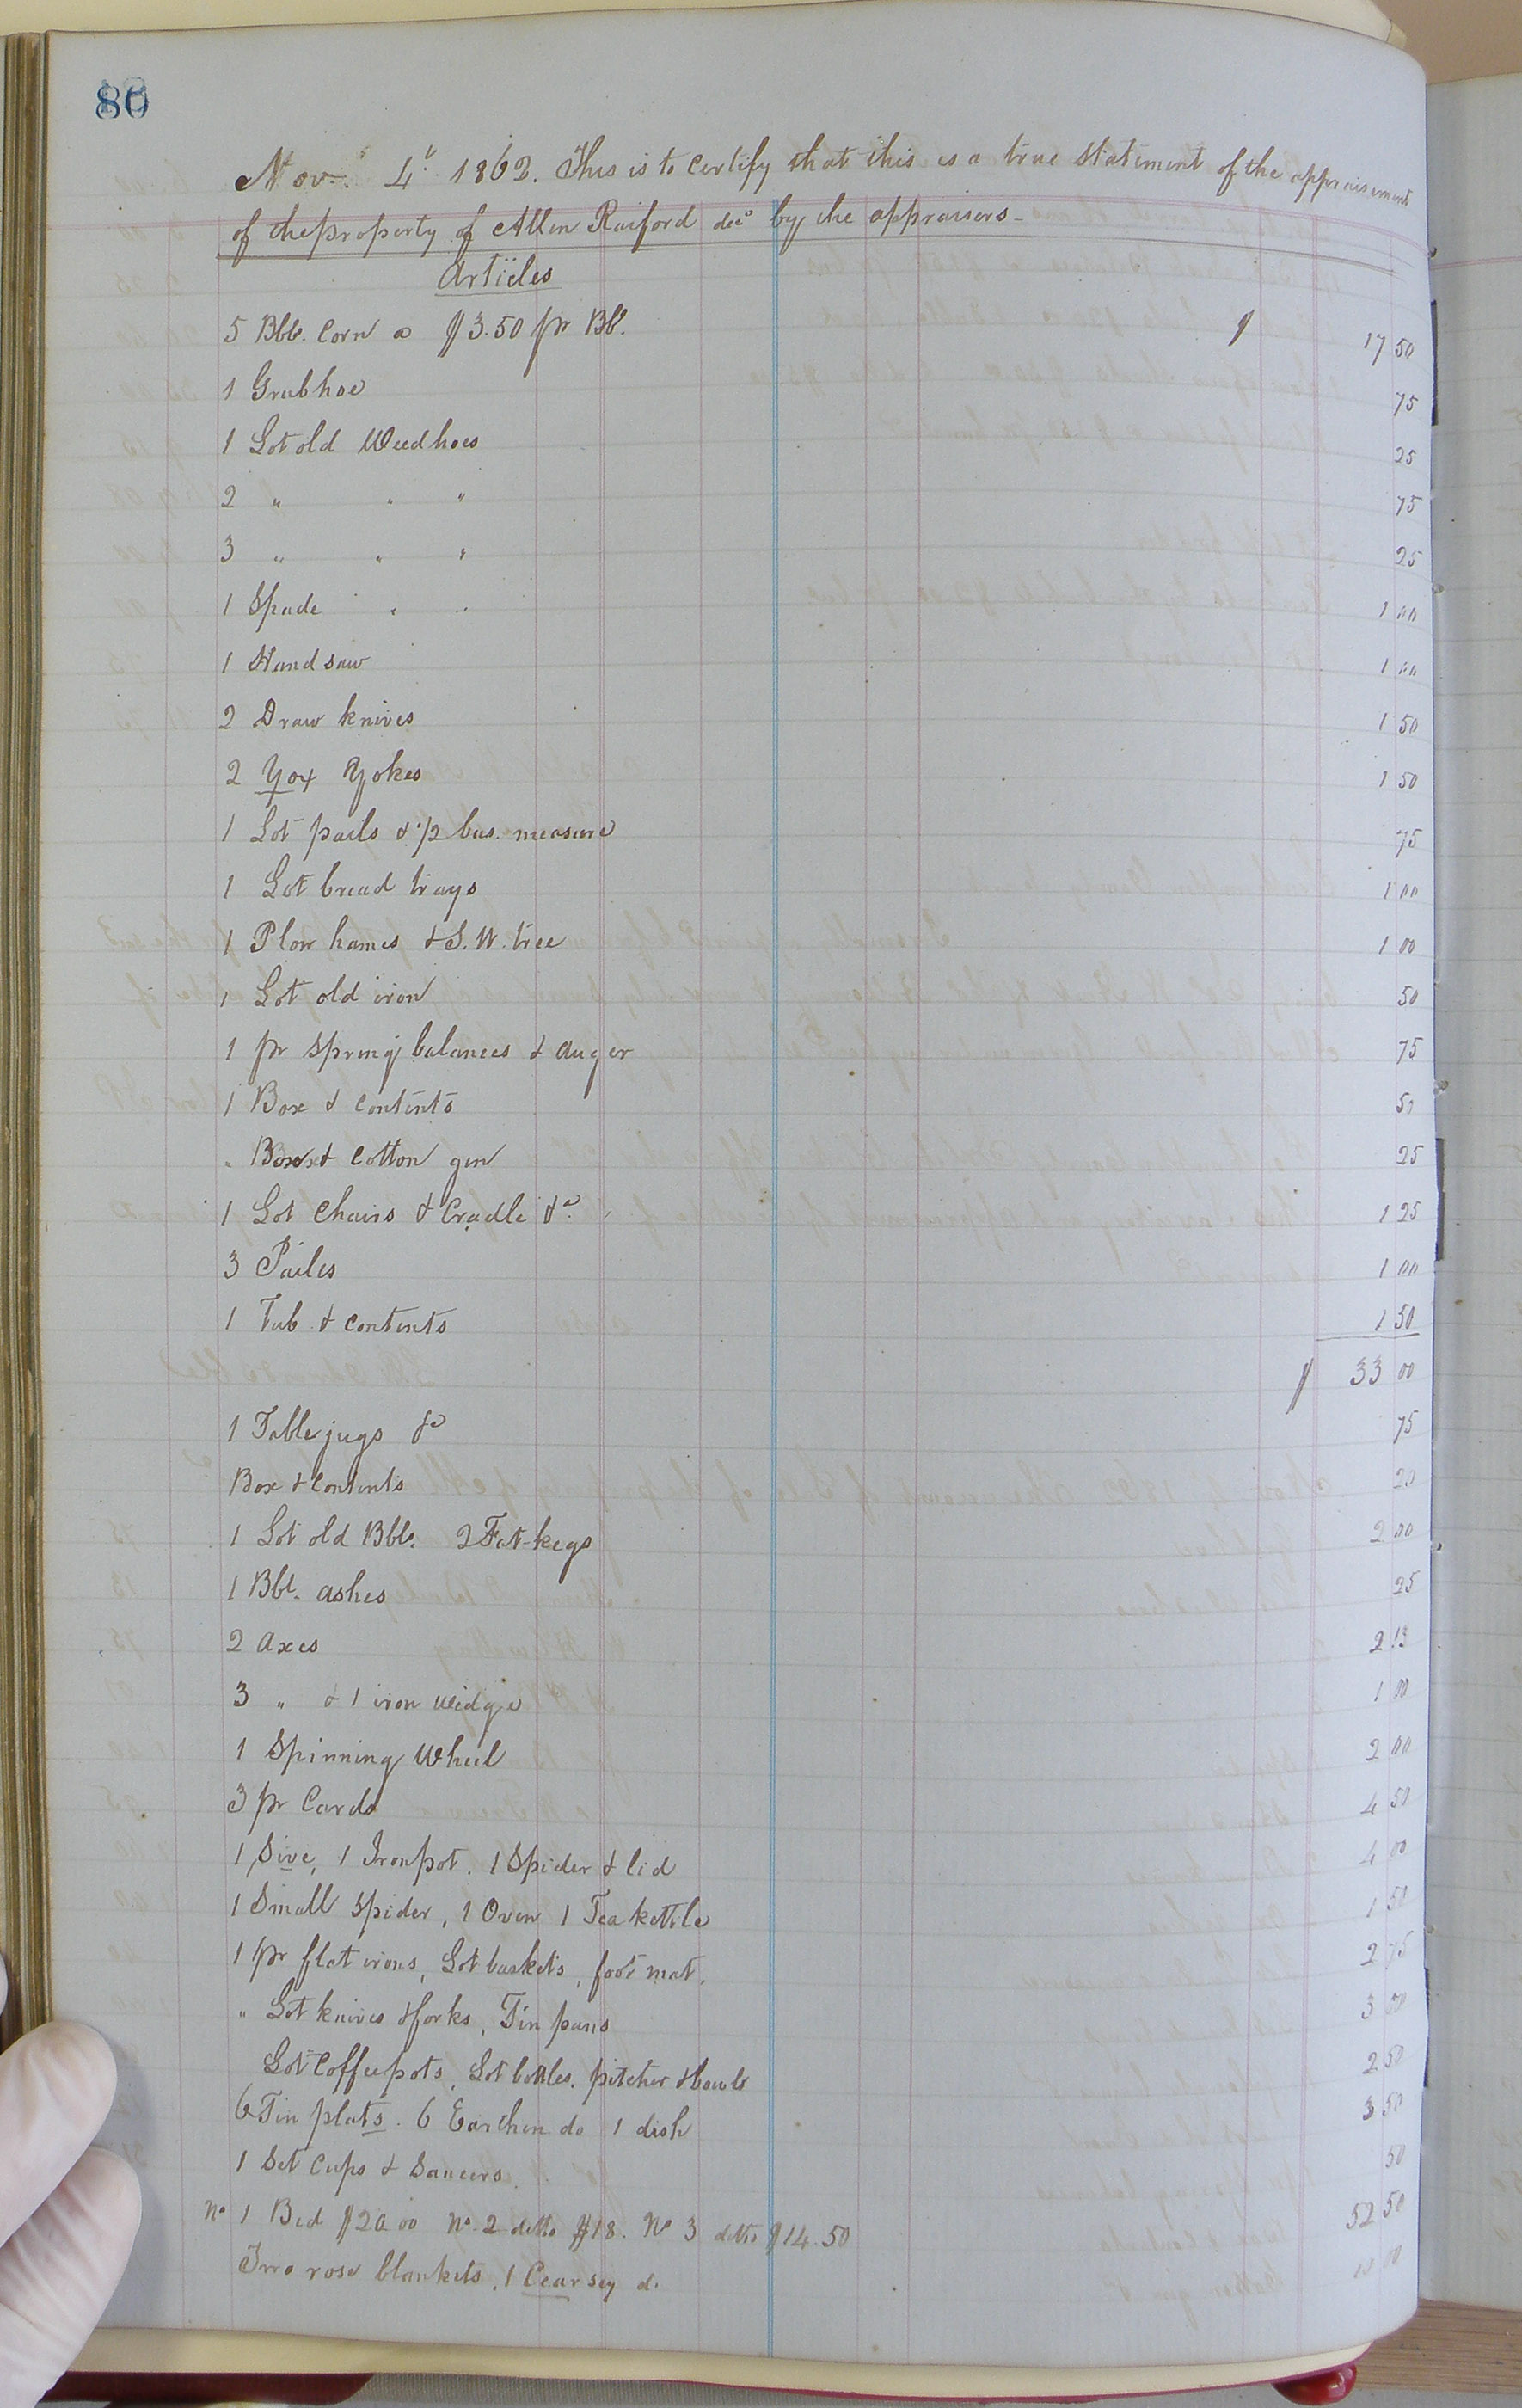 80
Nov. 4th 1862. This is to certify that this is a true statement of the appraisement
of the property of Allen Raiford decd by the appraisers -
Articles
5 Bbls. Corn @ $3.50 pr Bb. $ 17 50
1 Grubhoe 75
1 Lot old Weedhoes 25
2 " " " 75
3 " " " 25
1 Spade " " 1 00
1 Hand saw 1 00
2 Draw knives 1 50
2 Yox Yokes 1 50
1 Lot pails & 1/2 bus. measure 75
1 Lot bread trays 1 00
1 Plow hames & S. W. tree 1 00
1 Lot old iron 50
1 pr spring balances & auger 75
1 Box & contents 50
" Box & Cotton gin 25
1 Lot Chairs & Cradle &c. 1 25
3 Pailes 1 00
1 Tub & contents 1 50
$ 33 00
1 Table jugs &c 75
Box & contents 20
1 Lot old Bbls. 2 Fat-kegs 2 00
1 Bbl. ashes 25
2 Axes 2 13
3 " & 1 iron Widge 1 00
1 Spinning Wheel 2 00
3 pr Cards 4 50
1 Sive, 1 Ironpot. 1 Spider & lid 4 00
1 Small spider, 1 Oven 1 Tea kettle 1 50
1 pr flat irons, Lot baskets, foot mat. 2 75
" Lot knives & forks, Tin pans 3 00
Lot Coffeepots, Lot bottles. pitcher & bowls 2 50
6 Tin plats. 6 Earthen do 1 dish 3 50
1 Set Cups & Saucers. 50
No 1 Bed $20 00 No. 2 ditto $18. No 3 ditto $14.50 52 50
Two rose blankets, 1 Cearsey d. 10 00